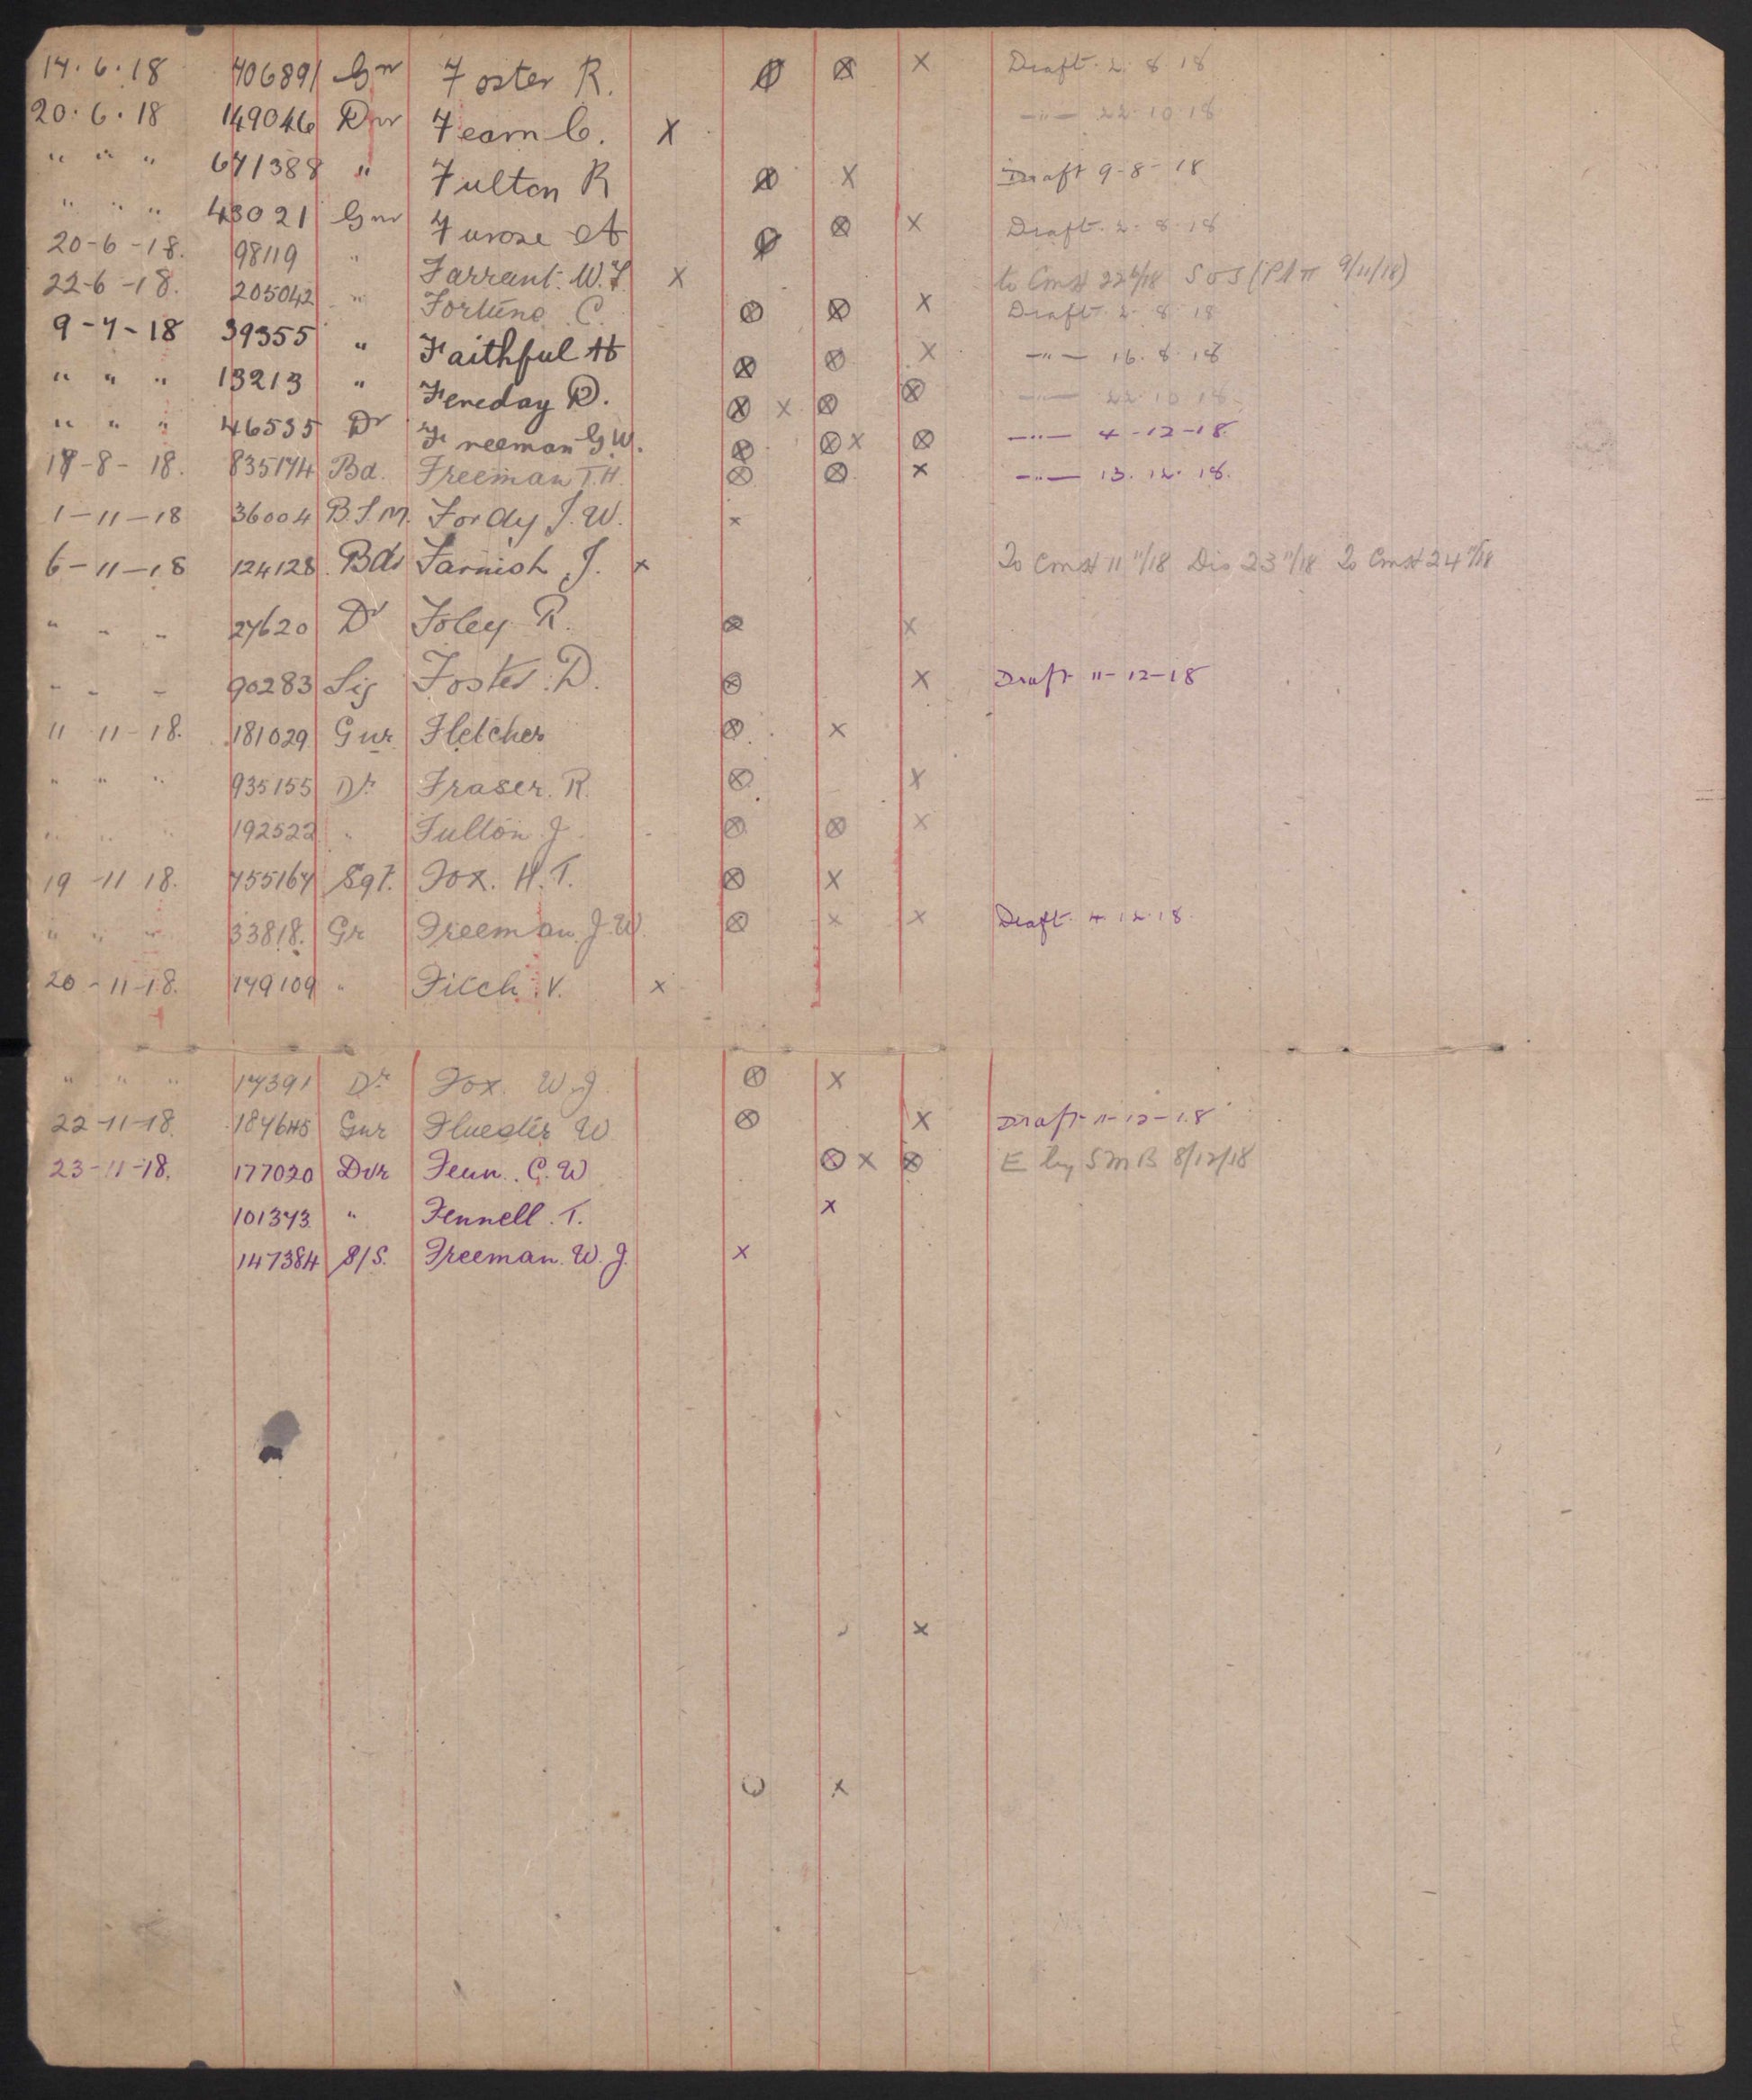 14.6.18 706891 Gnr Foster R. Ø ⊗ X Draft. 2. 8. 18
20.6.18 149046 Dvr Fearn C. X —"— 22.10.18
" " " 671388 " Fulton R ⊗ X Draft 9-8-18
" " " 43021 Gnr Furose A Ø ⊗ X Draft. 2. 8. 18
20-6-18. 98119 " Farrant. W.F. X to Conv 22 6/18 SOS 9/11/18)
22-6-18. 205042 " Fortune. C. ⊗ ⊗ X Draft. 2. 8. 18
9-7-18 39355 " Faithful H ⊗ ⊗ X —"— 16. 8. 18
" " " 13213 " Fereday R. ⊗ X ⊗ ⊗ —"— 22.10.18.
" " " 46535 Dr Freeman G.W. ⊗ ⊗ X ⊗ —"— 4-12-18.
17-8-18. 835174 Bd. Freeman T.H. ⊗ ⊗ X —"— 13. 12. 18.
1-11-18 36004 B.S.M. Fordy J.W. x
6-11-18 124128. Bdr Farnish J. x 11 11/18 Dis 23 11/18 24 11/18
" " " 27620 Dr Foley R. ⊗ X
" " " 90283 Sig Foster. D. ⊗ X Draft 11-12-18
11 11-18. 181029 Gnr Fletcher ⊗ X
" " " 935155 Dr Fraser. R. ⊗ X
" " " 192522 " Fulton. J. ⊗ ⊗ X
19-11 18. 755167 Sgt. Fox. H.T. ⊗ X
" " " 33818. Gr Freeman. J.W. ⊗ X X Draft. 4.12.18.
20-11-18. 149109 " Fitch. V. x
" " " 17391 Dr Fox. W.J. ⊗ X
22-11-18. 187645 Gnr W ⊗ X Draft 11-12-18
23-11-18. 177020 Dvr Fenn. C.W ⊗ X ⊗ E by SMB 8/12/18
101373. " Fennell. T. X
147384 S/S. Freeman. W.J. X
X
X